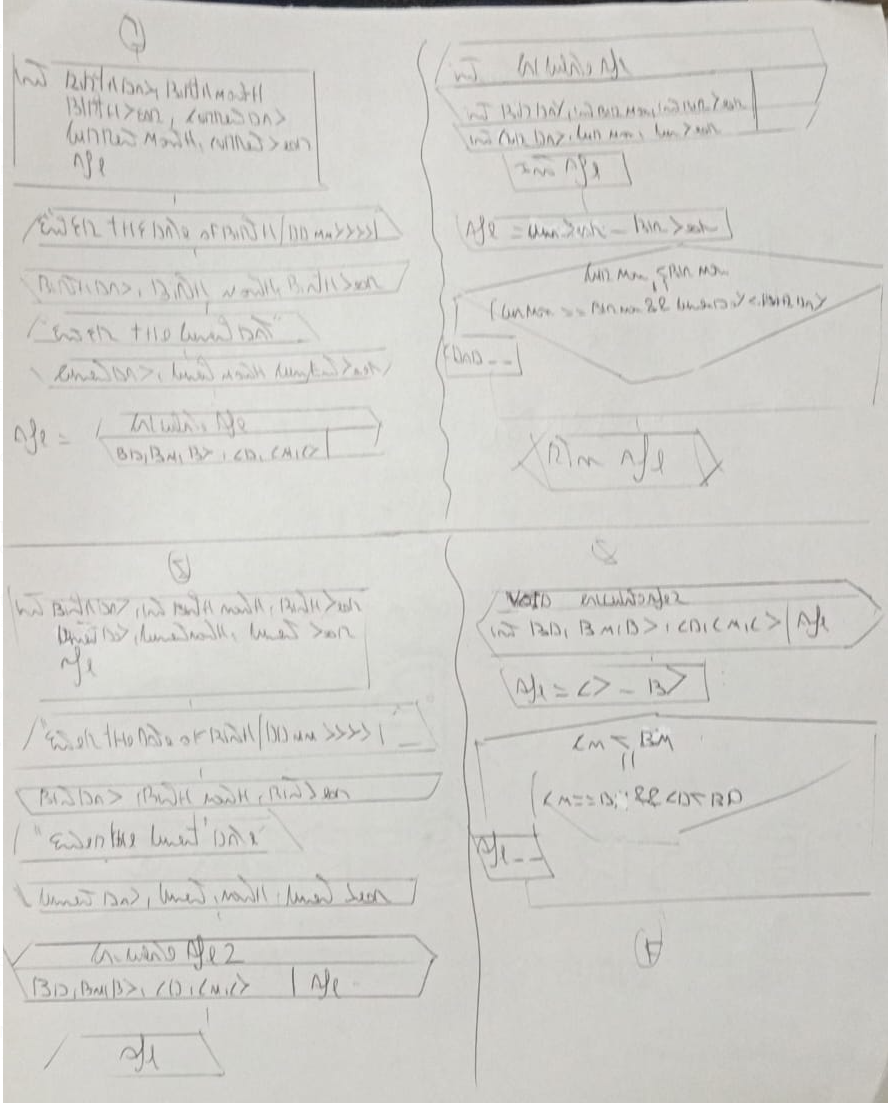 int BirthDay, BirthMonth
BirthYear, CurrentDay
CurrentMonth, CurrentYear
Age
"Enter the Date of Birth/DD MM YYYY
BirthDay, BirthMonth, BirthYear
"Enter the Current Date"
CurrentDay, CurrentMonth, CurrentYear
Age =
Calculate Age
BD, BM, BY, CD, CM, CY
int Calculate Age
int Age
Age = CurrYear - BirYear
Return Age
int BirthDay, int BirthMonth, BirthYear
CurrentDay, CurrentMonth, CurrentYear
Age
"Enter the Date of Birth/DD MM YYYY
BirthDay, BirthMonth, BirthYear
"Enter the Current Date
CurrentDay, Current Month, Current Year
Calculate Age2
BD, BM, BY, CD, CM, CY | Age
Age
VOID CalculateAge2
int BD, BM, BY, CD, CM, CY | Age
Age = CY - BY
CM < BM
||
CM == BM && CD < BD
Age--